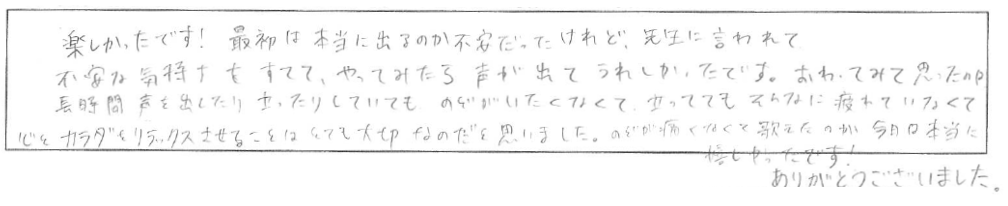 楽しかったです! 最初は本当に出るのか不安だったけれど、先生に言われて
不安な気持ちをすてて、やってみたら声が出てうれしかったです。おわってみて思ったのが
長時間声を出したり立ったりしていても、のどがいたくなくて、立っててもそんなに疲れていなくて
心とカラダをリラックスさせることはとても大切なのだと思いました。のどが痛くなくて歌えたのが今日本当に
嬉しかったです!
ありがとうございました。